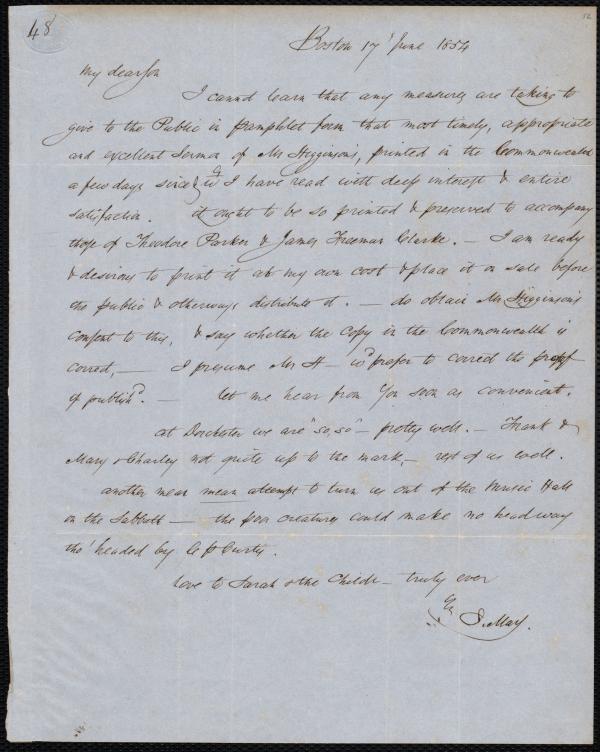 48
12
Boston 17' June 1854
My dear Son
I cannot learn that any measures are taking to
give to the Public in pamphlet form that most timely, appropriate
and excellent Sermon of Mr Higginson's, printed in the Commonwealth
a few days since, wh I have read with deep interest & entire
satisfaction. It ought to be so printed & preserved to accompany
those of Theodore Parker & James Freeman Clarke. — I am ready
& desirous to print it at my own cost & place it on sale before
the public & otherways distribute it. — do obtain Mr Higginson's
Consent to this, & say whether the Copy in the Commonwealth is
correct, — I presume Mr H— wd prefer to correct the proof
if publishd. — let me hear from you soon as convenient.
at Dorchester we are "so, so" — pretty well. — Frank &
Mary & Charley not quite up to the mark, — rest of us well.
another mean mean attempt to turn us out of the Music Hall
on the Sabbath — the poor creatures could make no headway
tho' headed by Curtis.
love to Sarah & the Childn — truly ever
Yr S. May.